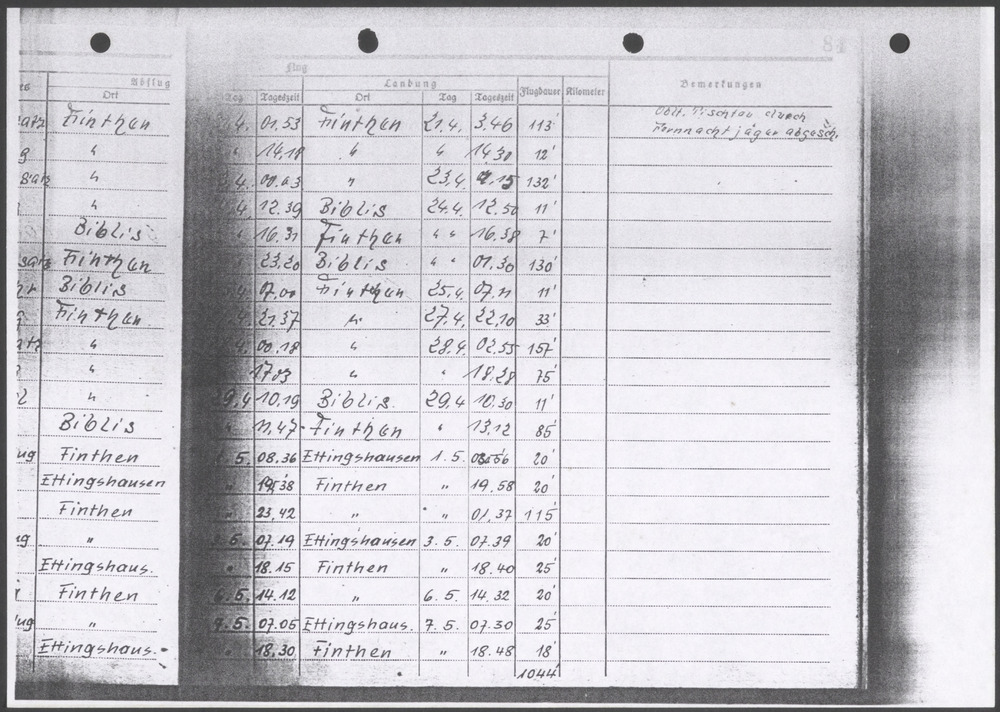 81
Flug
Abflug Landung Flugdauer Kilometer Bemerkungen
Ort Tag Tageszeit Ort Tag Tageszeit
atz Finthen 4. 01.53 Finthen 21.4. 3.46 113' Oblt. durch
Fernnachtjäger abgesch.
g " " 14.18 " " 14.30 12'
satz " 4. 00.03 " 23.4. 2.15 132'
" 4. 12.39 Biblis 24.4. 12.50 11'
Biblis " 16.31 Finthen " " 16.38 7'
satz Finthen " 23.20 Biblis " " 01.30 130'
Biblis 4. 07.00 Finthen 25.4. 07.11 11'
Finthen 4. 21.37 " 27.4. 22.10 33'
atz " 4. 00.18 " 28.4. 02.55 157'
" 17.03 " " 18.28 75'
" 29.4 10.19 Biblis. 29.4 10.30 11'
Biblis " 11.47 Finthen " 13.12 85'
ug Finthen 1.5. 08.36 Ettingshausen 1.5. 20'
Ettingshausen " 19.38 Finthen " 19.58 20'
Finthen " 23.42 " " 01.37 115'
ug " 3.5. 07.19 Ettingshausen 3.5. 07.39 20'
Ettingshaus. " 18.15 Finthen " 18.40 25'
Finthen 6.5. 14.12 " 6.5. 14.32 20'
ug " 7.5. 07.05 Ettingshaus. 7.5. 07.30 25'
Ettingshaus. " 18.30 Finthen " 18.48 18'
1044'